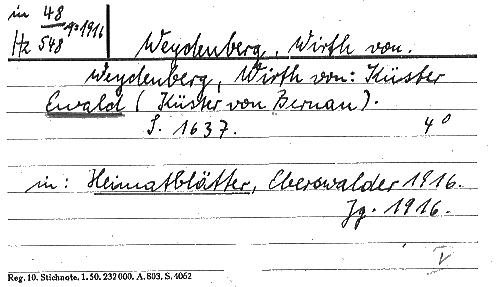 in 48 4° 1916
Hz 548
Weydenberg, Wirth von.
Weydenberg, Wirth von: Küster
Ewald (Küster von Bernau).
S. 1637. 4°
in: Heimatblätter, Eberswalder 1916.
Jg. 1916.
V
Reg. 10. Stichnote. 1. 50. 232000. A. 803. S. 4062